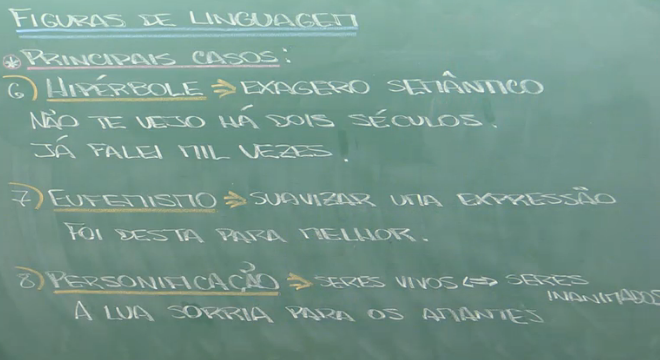 FIGURAS DE LINGUAGEM
* PRINCIPAIS CASOS:
6) HIPÉRBOLE ⇒ EXAGERO SEMÂNTICO
NÃO TE VEJO HÁ DOIS SÉCULOS.
JÁ FALEI MIL VEZES.
7) EUFEMISMO ⇒ SUAVIZAR UMA EXPRESSÃO
FOI DESTA PARA MELHOR.
8) PERSONIFICAÇÃO ⇒ SERES VIVOS ⇔ SERES
INANIMADOS
A LUA SORRIA PARA OS AMANTES